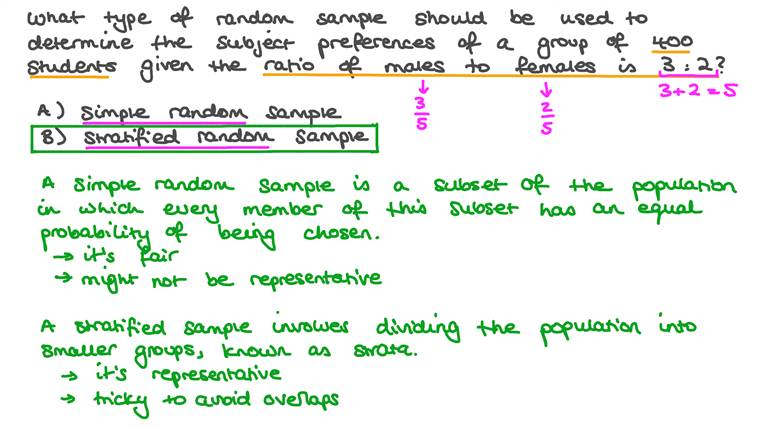 What type of random sample should be used to
determine the subject preferences of a group of 400
students given the ratio of males to females is 3 : 2?
3/5
2/5
3 + 2 = 5
A) Simple random sample
B) Stratified random sample
A simple random sample is a subset of the population
in which every member of this subset has an equal
probability of being chosen.
→ it's fair
→ might not be representative
A stratified sample involves dividing the population into
smaller groups, known as strata.
→ it's representative
→ tricky to avoid overlaps